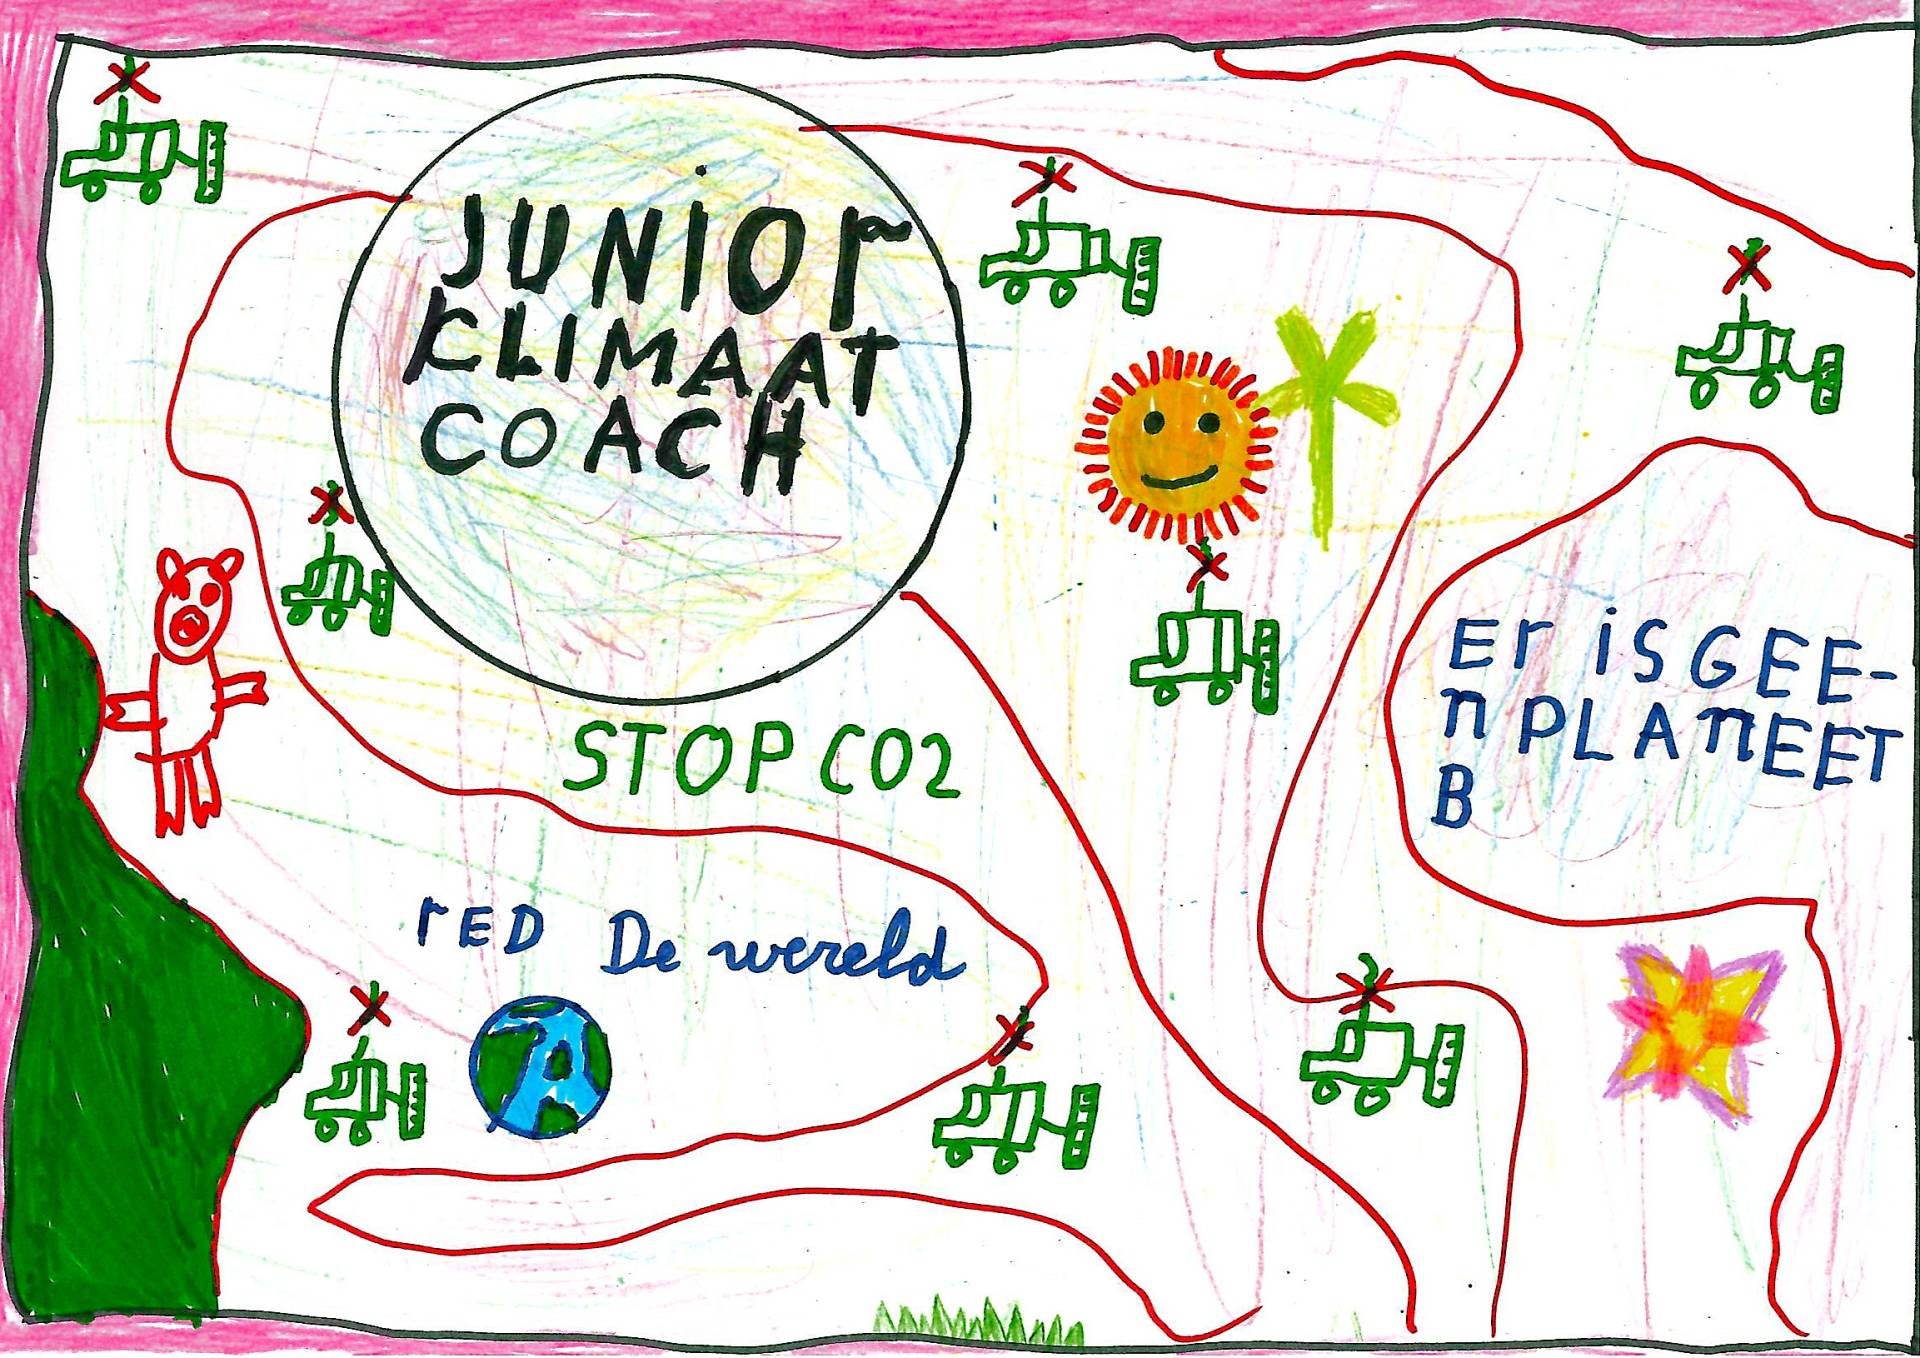 JUNiOr
KLIMAAT
COACH
STOP CO2
rED De wereld
Er iS GEE-
n PLAnEET
B